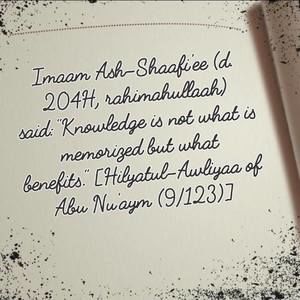 Imaam Ash-Shaafi'ee (d.
204H, rahimahullaah)
said: "Knowledge is not what is
memorized but what
benefits." [Hilyatul-Awliyaa of
Abu Nu'aym (9/123)]